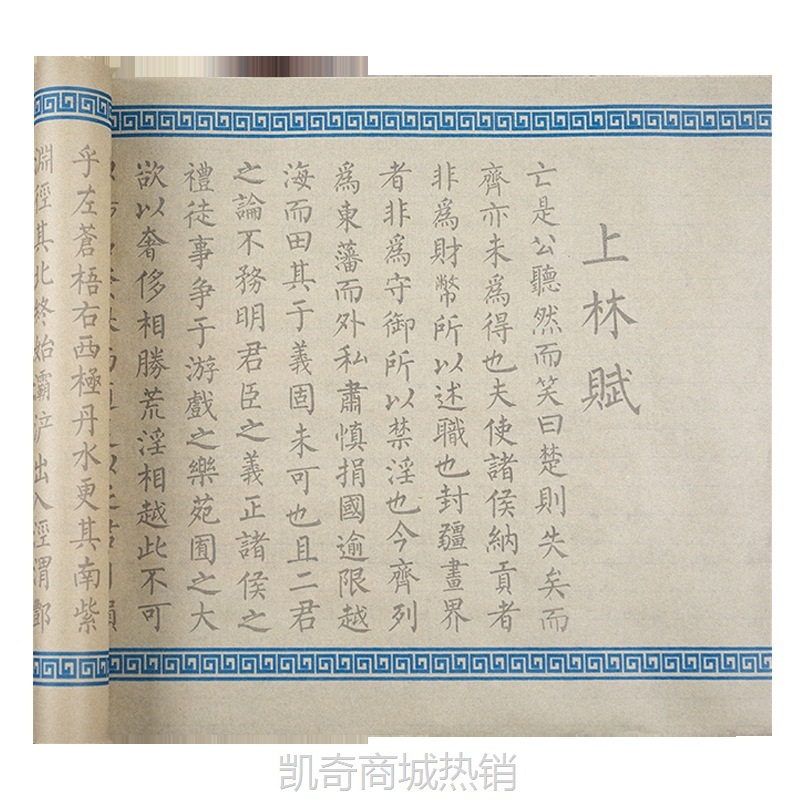 上林賦
亡是公聽然而笑曰楚則失矣而
齊亦未爲得也夫使諸侯納貢者
非爲財幣所以述職也封疆畫界
者非爲守御所以禁淫也今齊列
爲東藩而外私肅慎捐國逾限越
海而田其于義固未可也且二君
之論不務明君臣之義正諸侯之
禮徒事争于游戲之樂苑囿之大
欲以奢侈相勝荒淫相越此不可
乎左蒼梧右西極丹水更其南紫
淵徑其北終始灞浐出入涇渭酆
凯奇商城热销